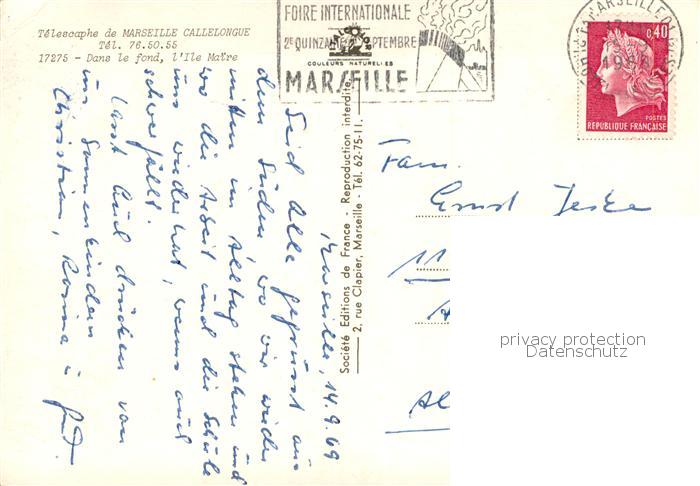 Télescaphe de MARSEILLE CALLELONGUE
Tél. 76.50.55
17275 - Dans le fond, l'Ile Maïre
FOIRE INTERNATIONALE
2e QUINZAINE SEPTEMBRE
MARSEILLE
DALCOLOR
COULEURS NATURELLES
MARSEILLE
0,40
POSTES
REPUBLIQUE FRANÇAISE
Société Editions de France - Reproduction interdite
2, rue Clapier, Marseille - Tél. 62-75-11.
Marseille, 14.9.69
Seid Alle gegrüsst aus
dem Süden, wo wir wieder
mitten im Alltag stehen und
wo die Arbeit und die Schule
uns wieder hat, wenns auch
schwerfällt.
Lasst Euch drücken von
uns Sonnenkindern
Christian,
Fam.
Ernst Jeske
11
Al
privacy protection
Datenschutz